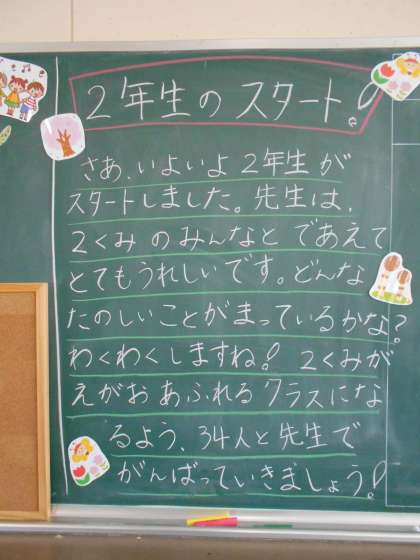 2年生のスタート!
さあ、いよいよ2年生が
スタートしました。先生は、
2くみのみんなとであえて
とてもうれしいです。どんな
たのしいことがまっているかな?
わくわくしますね! 2くみが
えがおあふれるクラスにな
るよう、34人と先生で
がんばっていきましょう!